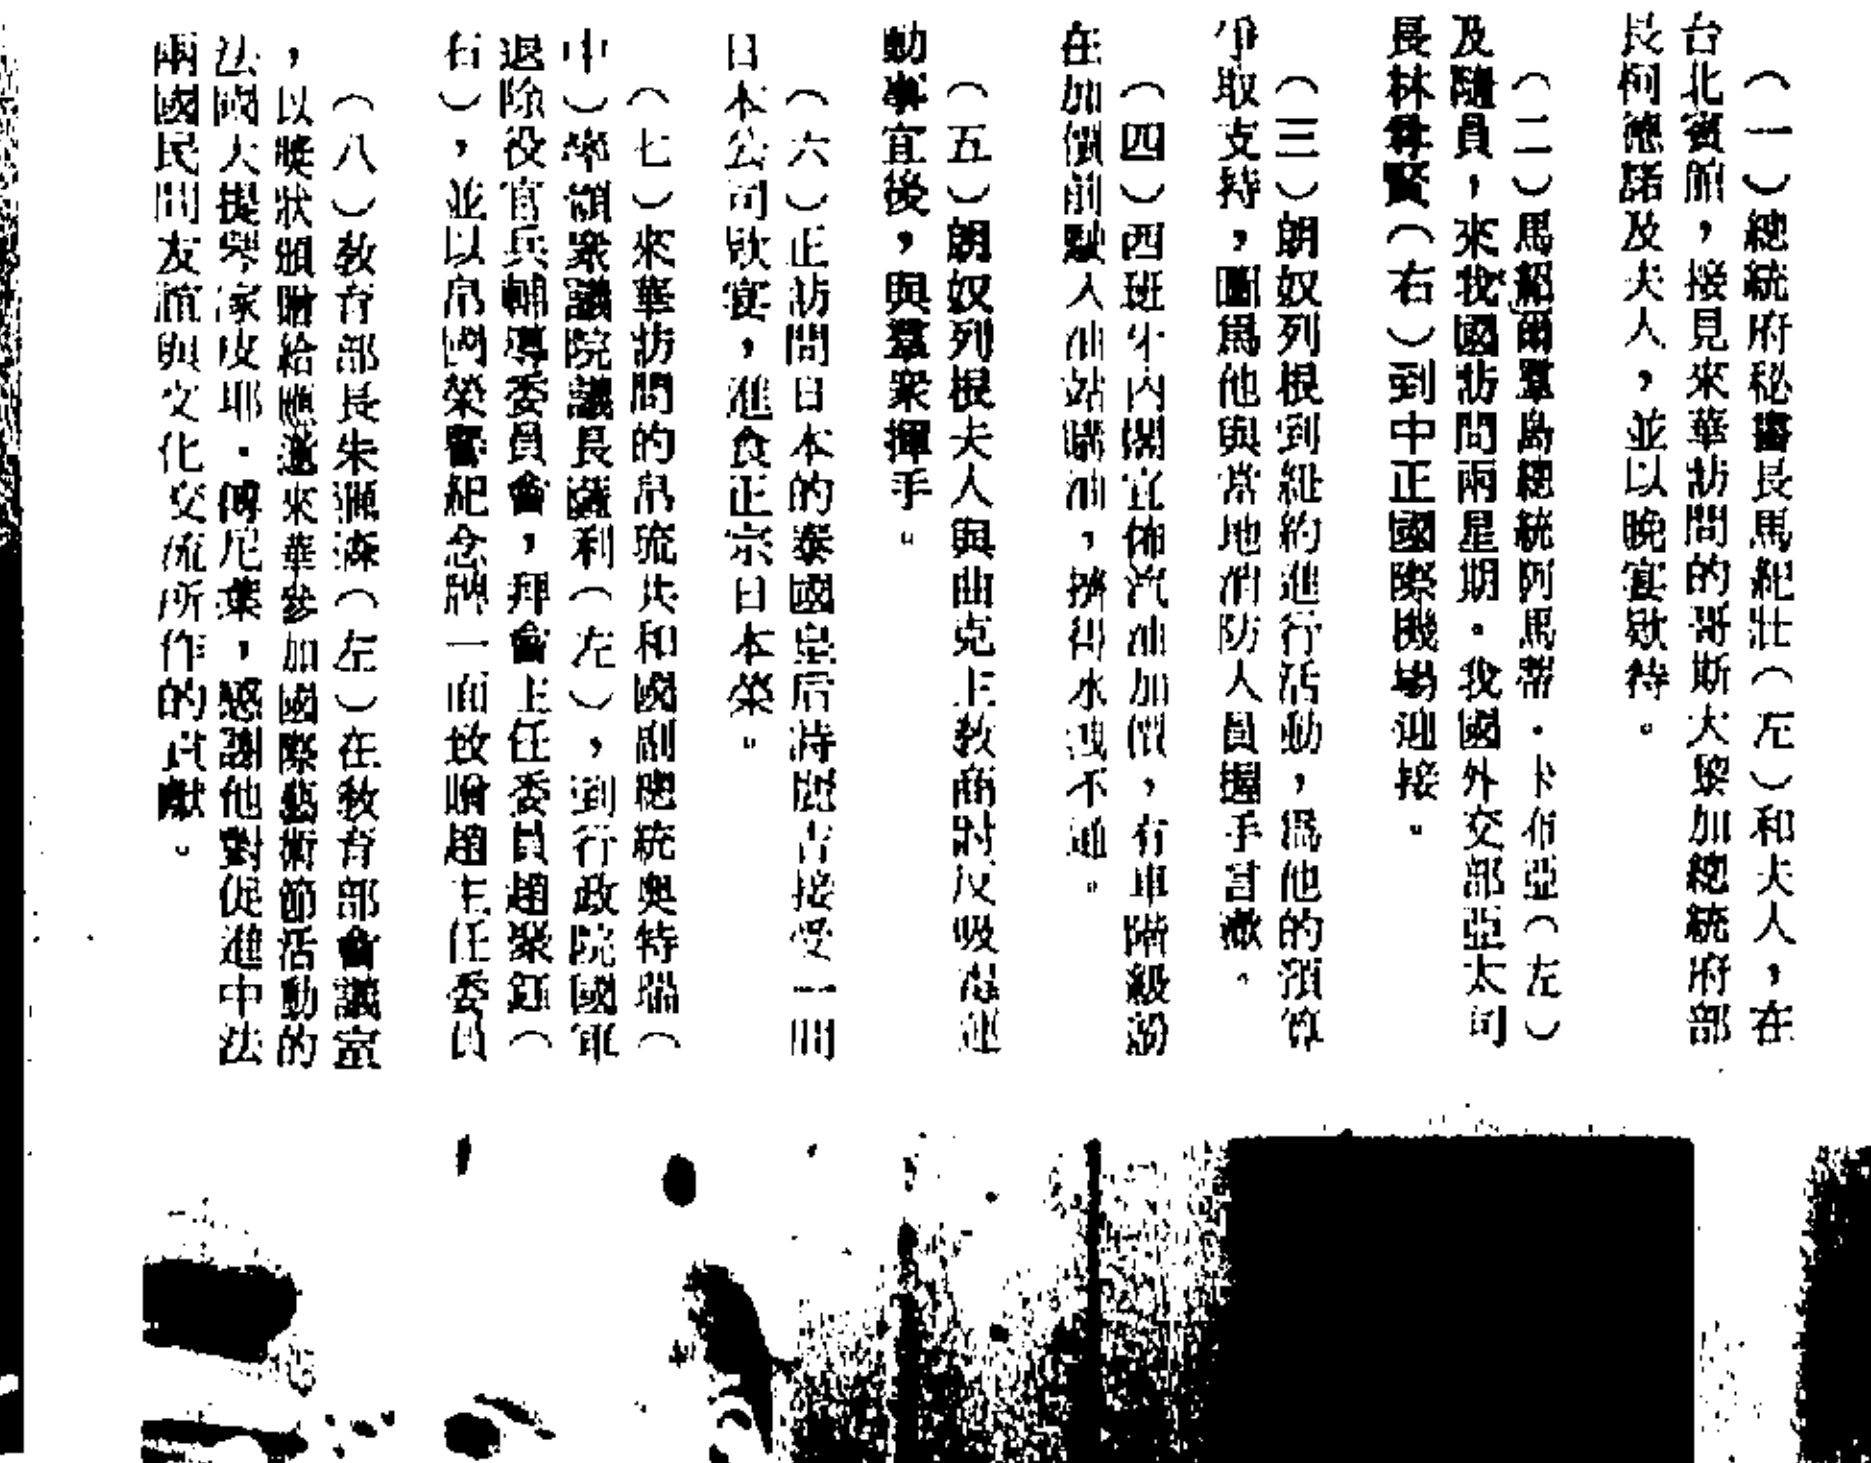 （一）總統府秘書長馬紀壯（左）和夫人，在
台北賓館，接見來華訪問的哥斯大黎加總統府部
長柯德諾及夫人，並以晚宴欵待。
（二）馬紹爾羣島總統阿馬蒂・卡布亞（左）
及隨員，來我國訪問兩星期。我國外交部亞太司
長林尊賢（右）到中正國際機場迎接。
（三）朗奴列根到紐約進行活動，爲他的預算
爭取支持，圖爲他與當地消防人員握手言歡。
（四）西班牙內閣宣佈汽油加價，有車階級紛
在加價前駛入油站購油，擠得水洩不通。
（五）朗奴列根夫人與曲克主教商討反吸毒運
動事宜後，與羣衆揮手。
（六）正訪問日本的泰國皇后詩麗吉接受一間
日本公司欵宴，進食正宗日本菜。
（七）來華訪問的帛琉共和國副總統奧特瑞（
中）率領衆議院議長薩利（左），到行政院國軍
退除役官兵輔導委員會，拜會主任委員趙聚鈺（
右），並以帛國榮譽紀念牌一面致贈趙主任委員
（八）教育部長朱滙森（左）在敎育部會議室
，以獎狀頒贈給應邀來華參加國際藝術節活動的
法國大提琴家皮耶・傅尼葉，感謝他對促進中法
兩國民間友誼與文化交流所作的貢獻。